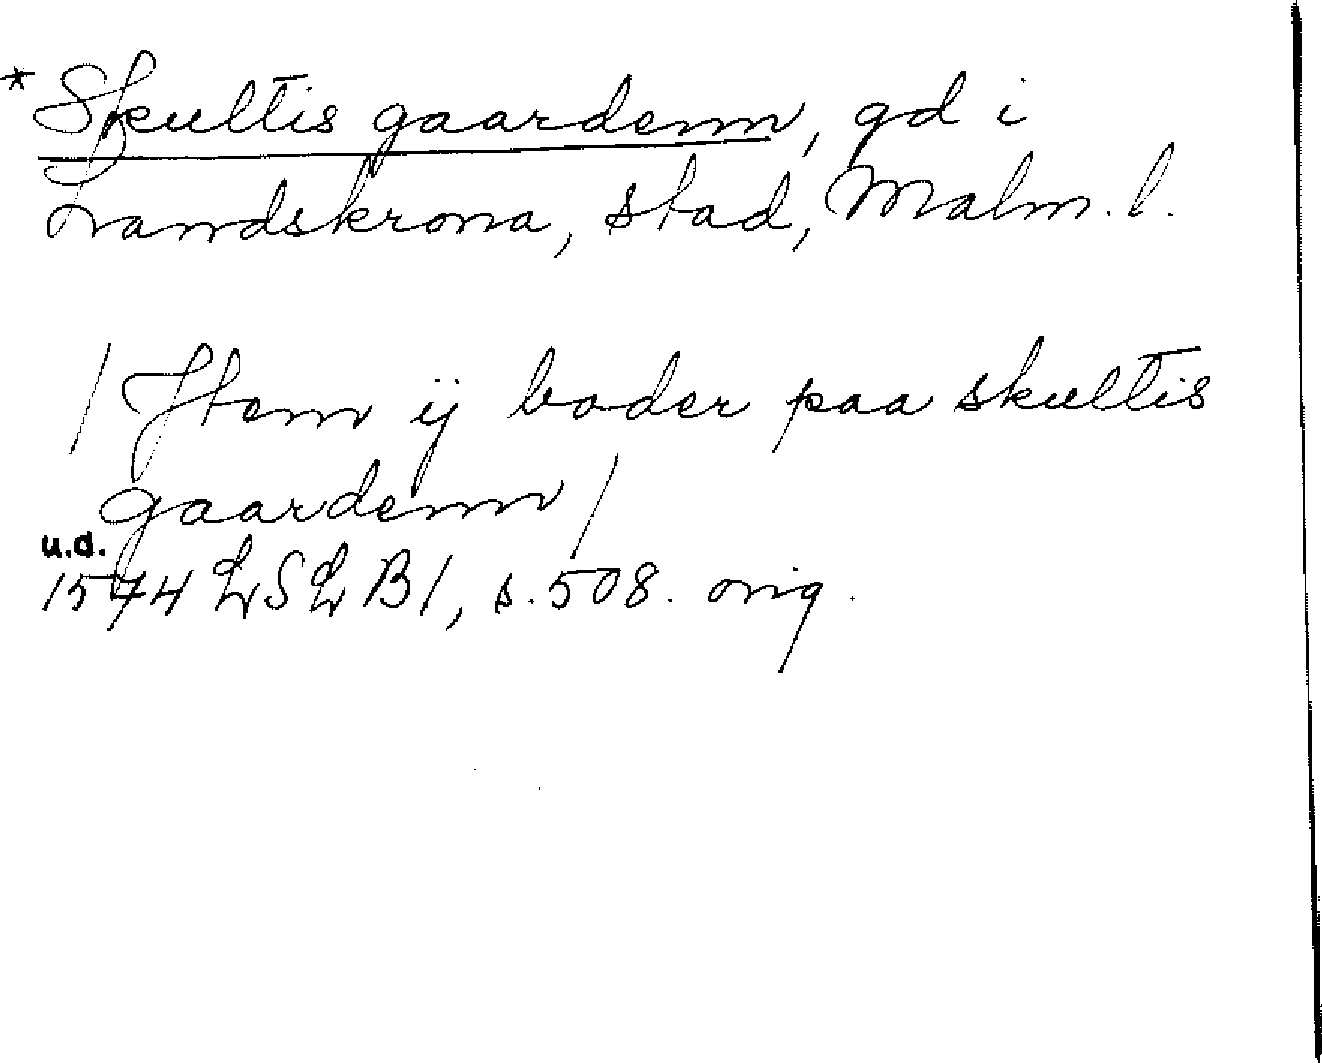 *Skultis gaardenn, gd i
Landskrona, stad, Malm. l.
/Jtem ij boder paa skultis
gaardenn/
u.d.
1574 LSLB1, s. 508. orig.